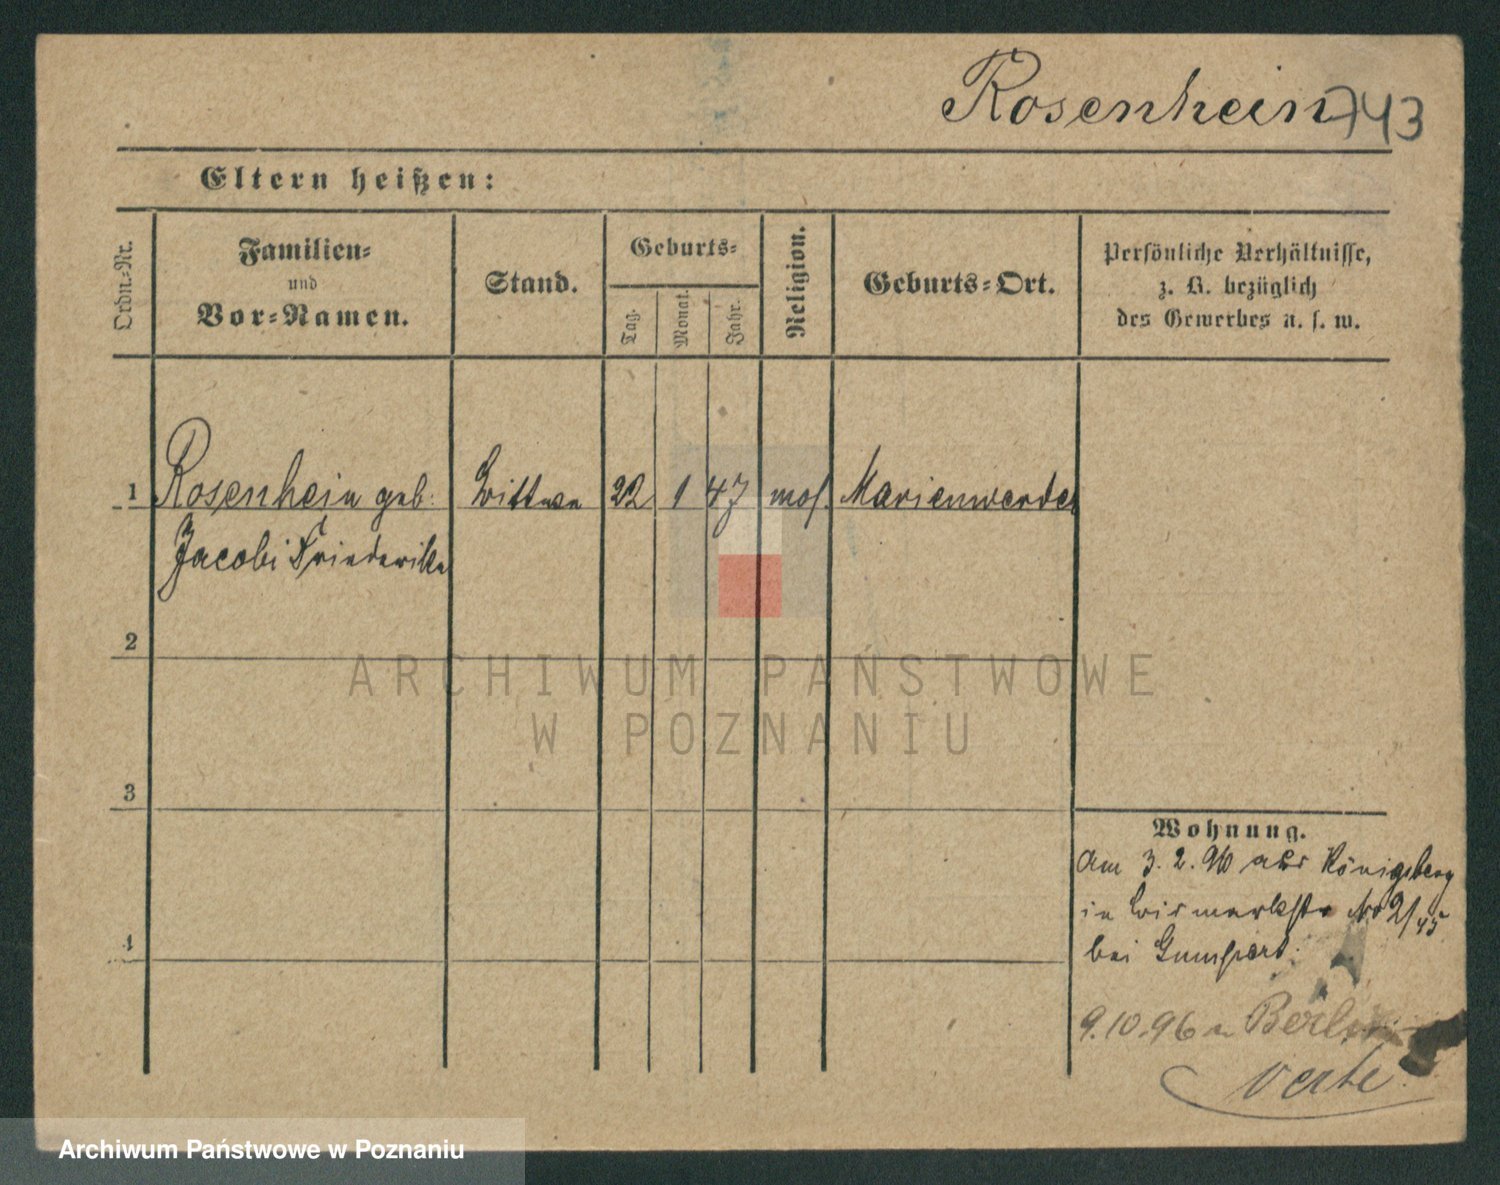 Rosenhein 743
Eltern heißen:
Ordn.-Nr.
Familien-
und
Vor-Namen.
Stand.
Geburts-
Tag.
Monat.
Jahr.
Religion.
Geburts-Ort.
Persönliche Verhältnisse,
z. B. bezüglich
des Gewerbes u. s. w.
1 Rosenhein geb: Wittwe 22 1 47 mos. Marienwerder
Jacobi Friederike
2
3
4
ARCHIWUM PAŃSTWOWE
W POZNANIU
Wohnung.
Am 3. 2. 96 aus Königsberg
in No 2/45
bei Gumpert.
9.10.96 n Berlin
verte
Archiwum Państwowe w Poznaniu